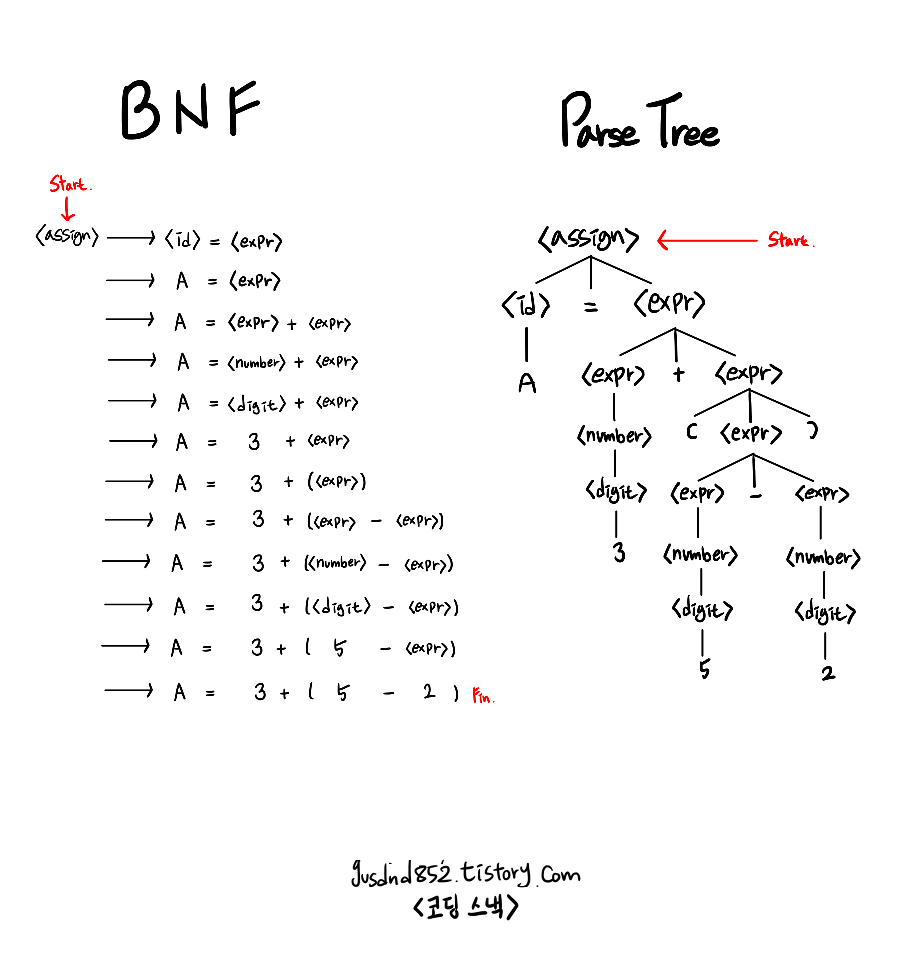 BNF
Start.
<assign> → <id> = <expr>
→ A = <expr>
→ A = <expr> + <expr>
→ A = <number> + <expr>
→ A = <digit> + <expr>
→ A = 3 + <expr>
→ A = 3 + (<expr>)
→ A = 3 + (<expr> - <expr>)
→ A = 3 + (<number> - <expr>)
→ A = 3 + (<digit> - <expr>)
→ A = 3 + ( 5 - <expr>)
→ A = 3 + ( 5 - 2 ) Fin.
Parse Tree
<assign> ← Start.
<id> = <expr>
A <expr> + <expr>
<number> ( <expr> )
<digit> <expr> - <expr>
3 <number> <number>
<digit> <digit>
5 2
gusdnd852.tistory.com
<코딩 스낵>